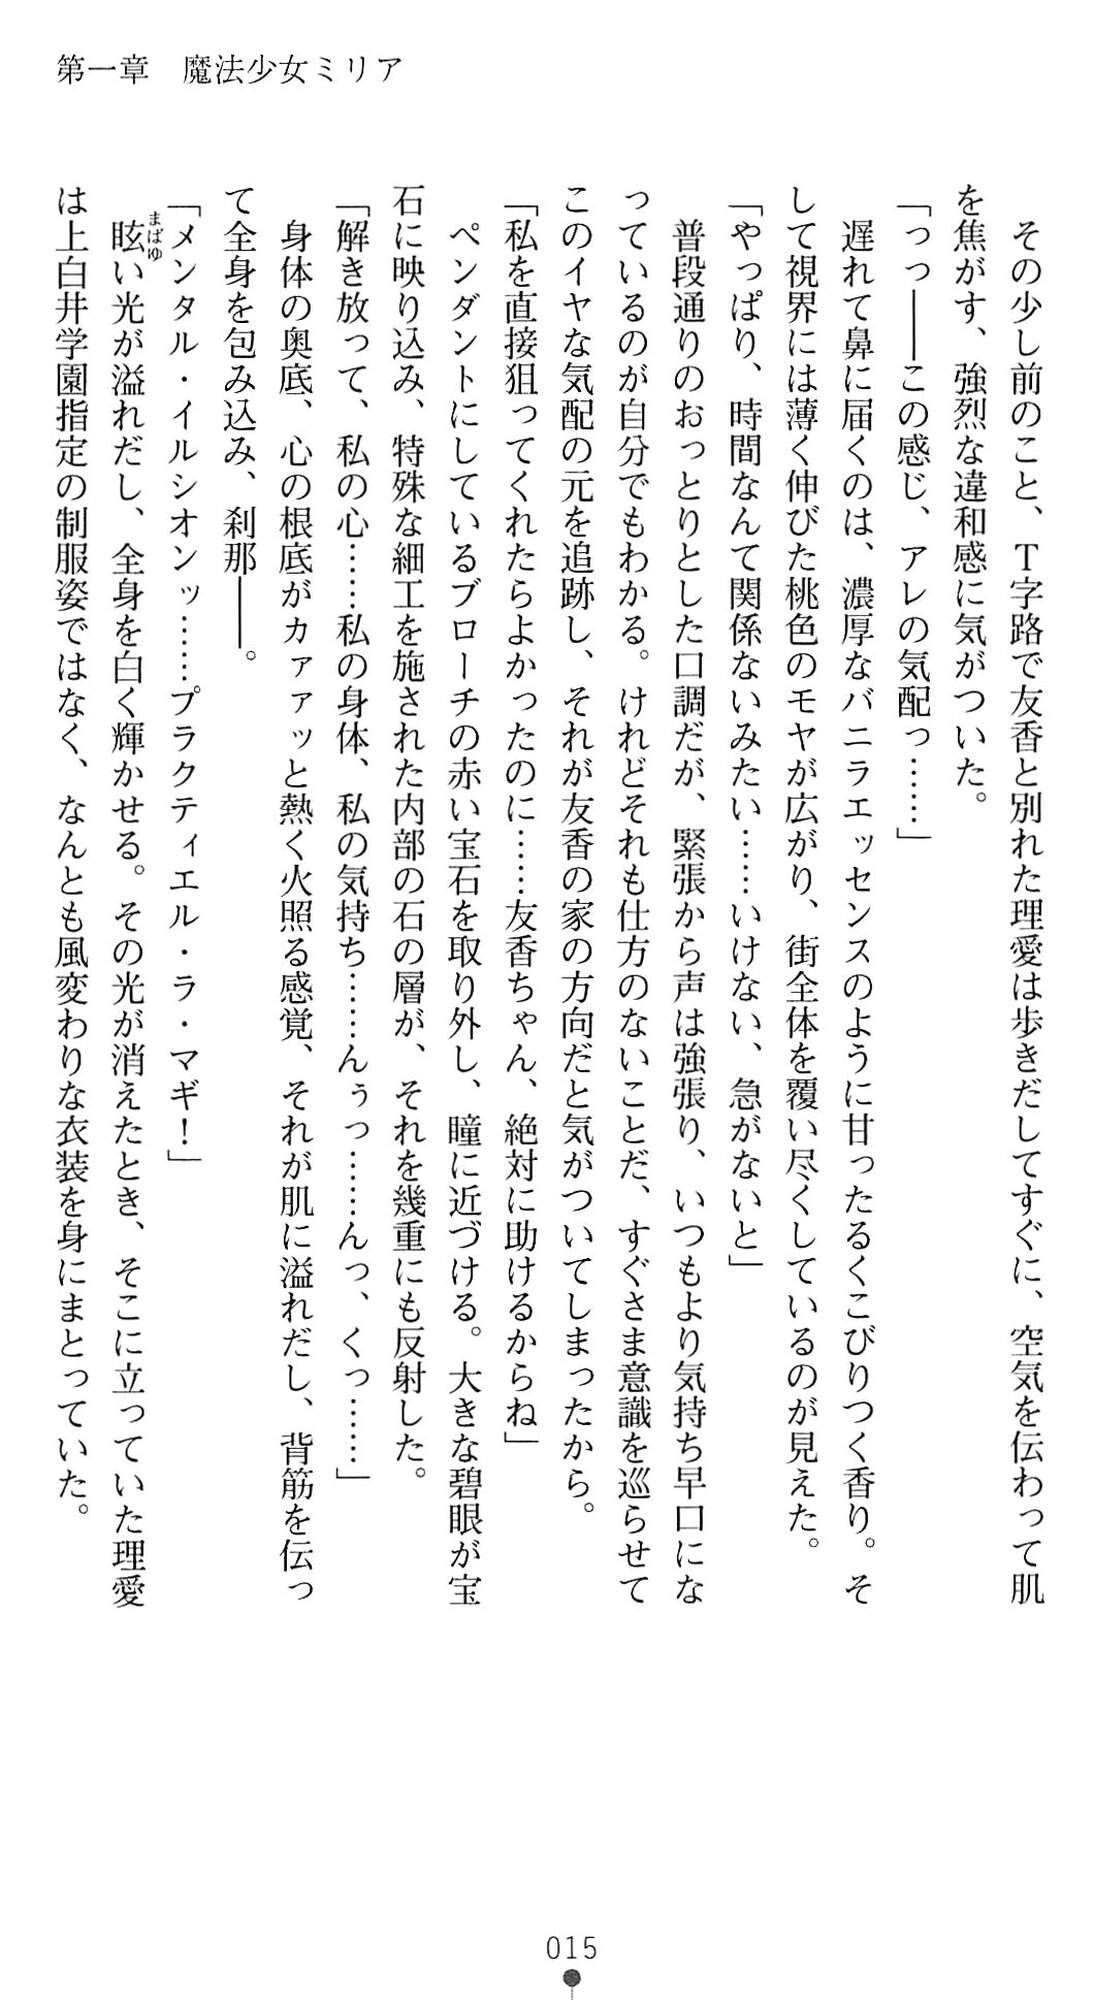 第一章　魔法少女ミリア
　その少し前のこと、Ｔ字路で友香と別れた理愛は歩きだしてすぐに、空気を伝わって肌
を焦がす、強烈な違和感に気がついた。
「っっ――この感じ、アレの気配っ……」
　遅れて鼻に届くのは、濃厚なバニラエッセンスのように甘ったるくこびりつく香り。そ
して視界には薄く伸びた桃色のモヤが広がり、街全体を覆い尽くしているのが見えた。
「やっぱり、時間なんて関係ないみたい……いけない、急がないと」
　普段通りのおっとりとした口調だが、緊張から声は強張り、いつもより気持ち早口にな
っているのが自分でもわかる。けれどそれも仕方のないことだ、すぐさま意識を巡らせて
このイヤな気配の元を追跡し、それが友香の家の方向だと気がついてしまったから。
「私を直接狙ってくれたらよかったのに……友香ちゃん、絶対に助けるからね」
　ペンダントにしているブローチの赤い宝石を取り外し、瞳に近づける。大きな碧眼が宝
石に映り込み、特殊な細工を施された内部の石の層が、それを幾重にも反射した。
「解き放って、私の心……私の身体、私の気持ち……んぅっ……んっ、くっ……」
　身体の奥底、心の根底がカァァッと熱く火照る感覚、それが肌に溢れだし、背筋を伝っ
て全身を包み込み、刹那――。
「メンタル・イルシオンッ……プラクティエル・ラ・マギ！」
　眩まばゆい光が溢れだし、全身を白く輝かせる。その光が消えたとき、そこに立っていた理愛
は上白井学園指定の制服姿ではなく、なんとも風変わりな衣装を身にまとっていた。
015